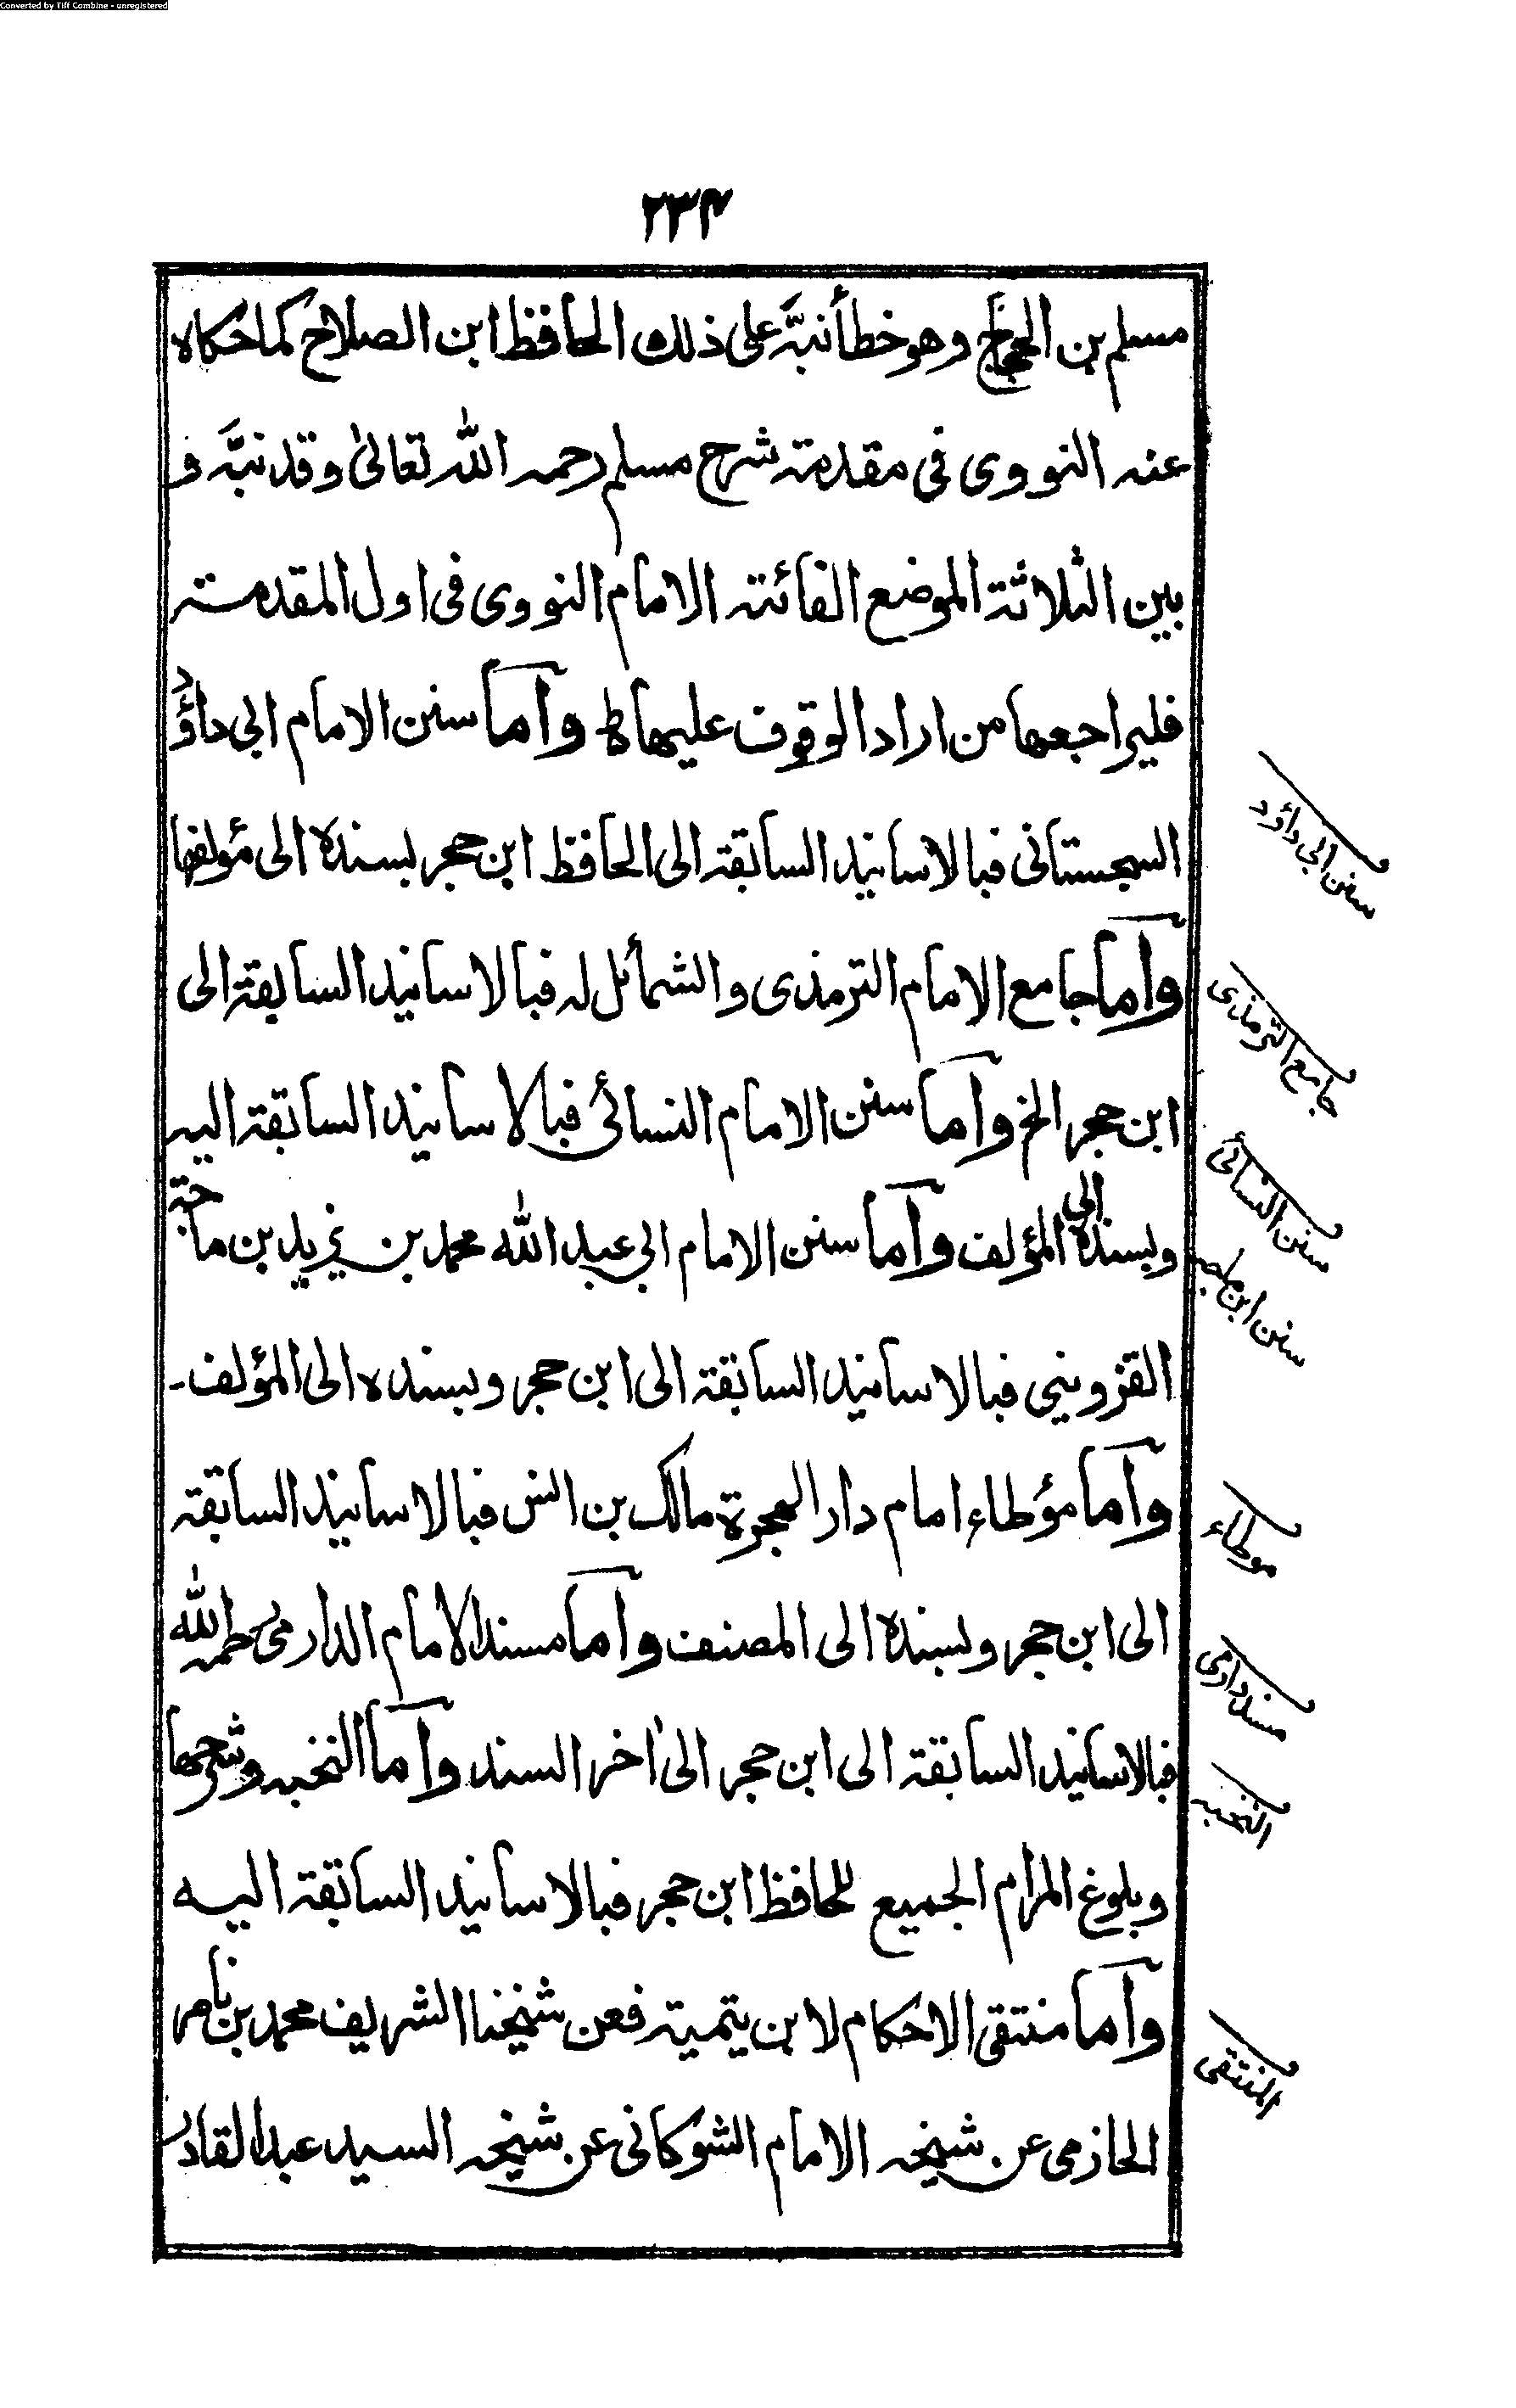 Converted by Tiff Combine - unregistered
٢٣٤
مسلم بن الحجاج وهو خطأ نبَّه على ذلك الحافظ ابن الصلاح كما حكاه
عنه النووى فى مقدمة شرح مسلم رحمه الله تعالىٰ وقد نبَّه و
بين الثلاثة الموضع الفائتة الامام النووى فى اول المقدمة
فليراجعها من اراد الوقوف عليها ط وآما سنن الامام ابى داؤد
السجستانى فبالاسانيد السابقة الى الحافظ ابن حجر بسنده الى مؤلفها
وآما جامع الامام الترمذى والشمائل له فبالاسانيد السابقة الى
ابن حجر الخ وآما سنن الامام النسائى فبالاسانيد السابقة اليه
وبسنده الى المؤلف وآما سنن الامام ابى عبد الله محمد بن يزيد بن ماجة
القزوينى فبالاسانيد السابقة الى ابن حجر وبسنده الى المؤلف-
وآما مؤطاء امام دار الهجرة مالك بن انس فبالاسانيد السابقة
الى ابن حجر وبسنده الى المصنف وآما مسند الامام الدارمى رحمه الله
فبالاسانيد السابقة الى ابن حجر الىٰ اخر السند وآما النخبه وشرحها
وبلوغ المرام الجميع للحافظ ابن حجر فبالاسانيد السابقة اليه
وآما منتقى الاحكام لابن يتمية فعن شيخنا الشريف محمد بن ناصر
الحازمى عن شيخه الامام الشوكانى عن شيخه السيد عبد القادر
سنن ابى داؤد
جامع الترمذى
سنن النسائى
سنن ابن ماجه
موطاء
مسند دارمى
النخبه
المنتقى